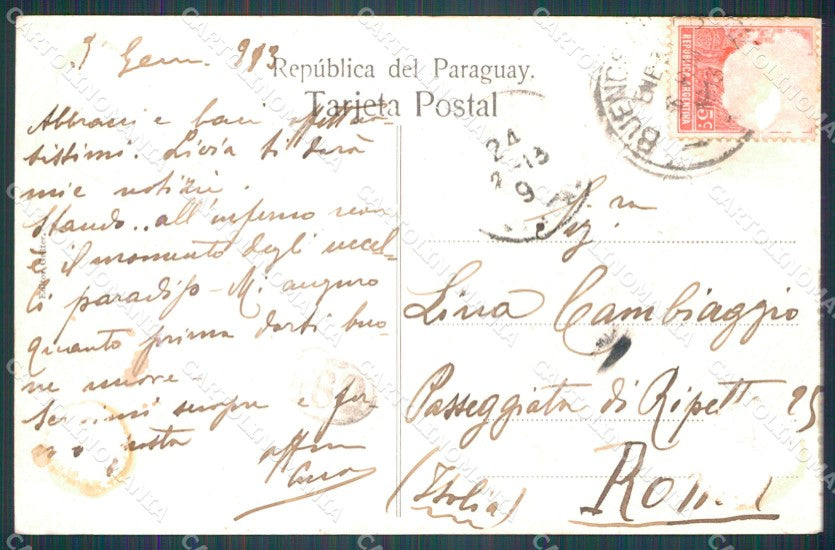 3 Genn. 913
República del Paraguay.
Tarjeta Postal
Abbracci e baci affettuo-
sissimi. Livia ti darà
mie notizie.
Stando all'inferno non
è il momento degli uccel-
li paradiso - Mi auguro
quanto prima darti buo-
ne nuove
sempre e
posta
affmo
REPUBLICA ARGENTINA
5c
BUENOS
ENE
24
2 13
9
Sig.ra
Lina Cambiaggio
Passeggiata di Ripetta 25
(Italia)
Roma
CARTOLINOMANIA